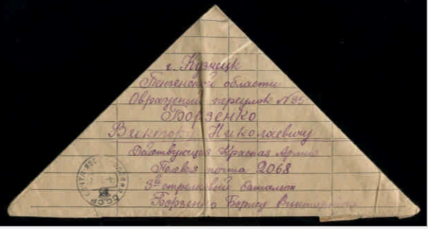 г. Кузнецк
Пензенской области
Овражный переулок №
Борзенко
Виктору Николаевичу
Действующая Красная Армия
Полевая почта 2068
3й стрелковый батальон
Борзенко Борису Викторовичу
СССР